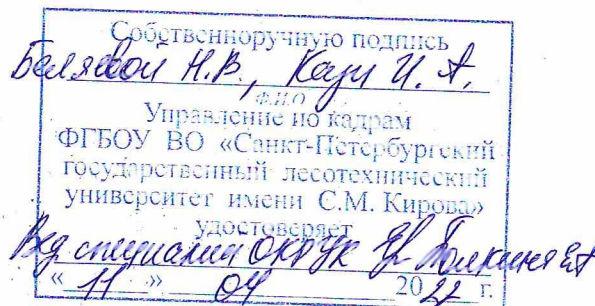 Собственноручную подпись
Беляевой Н.В., Кази И. А.
Ф.И.О
Управление по кадрам
ФГБОУ ВО «Санкт-Петербургский
государственный лесотехнический
университет имени С.М. Кирова»
удостоверяет
Вед специалист
« 11 » 04 2022 г.